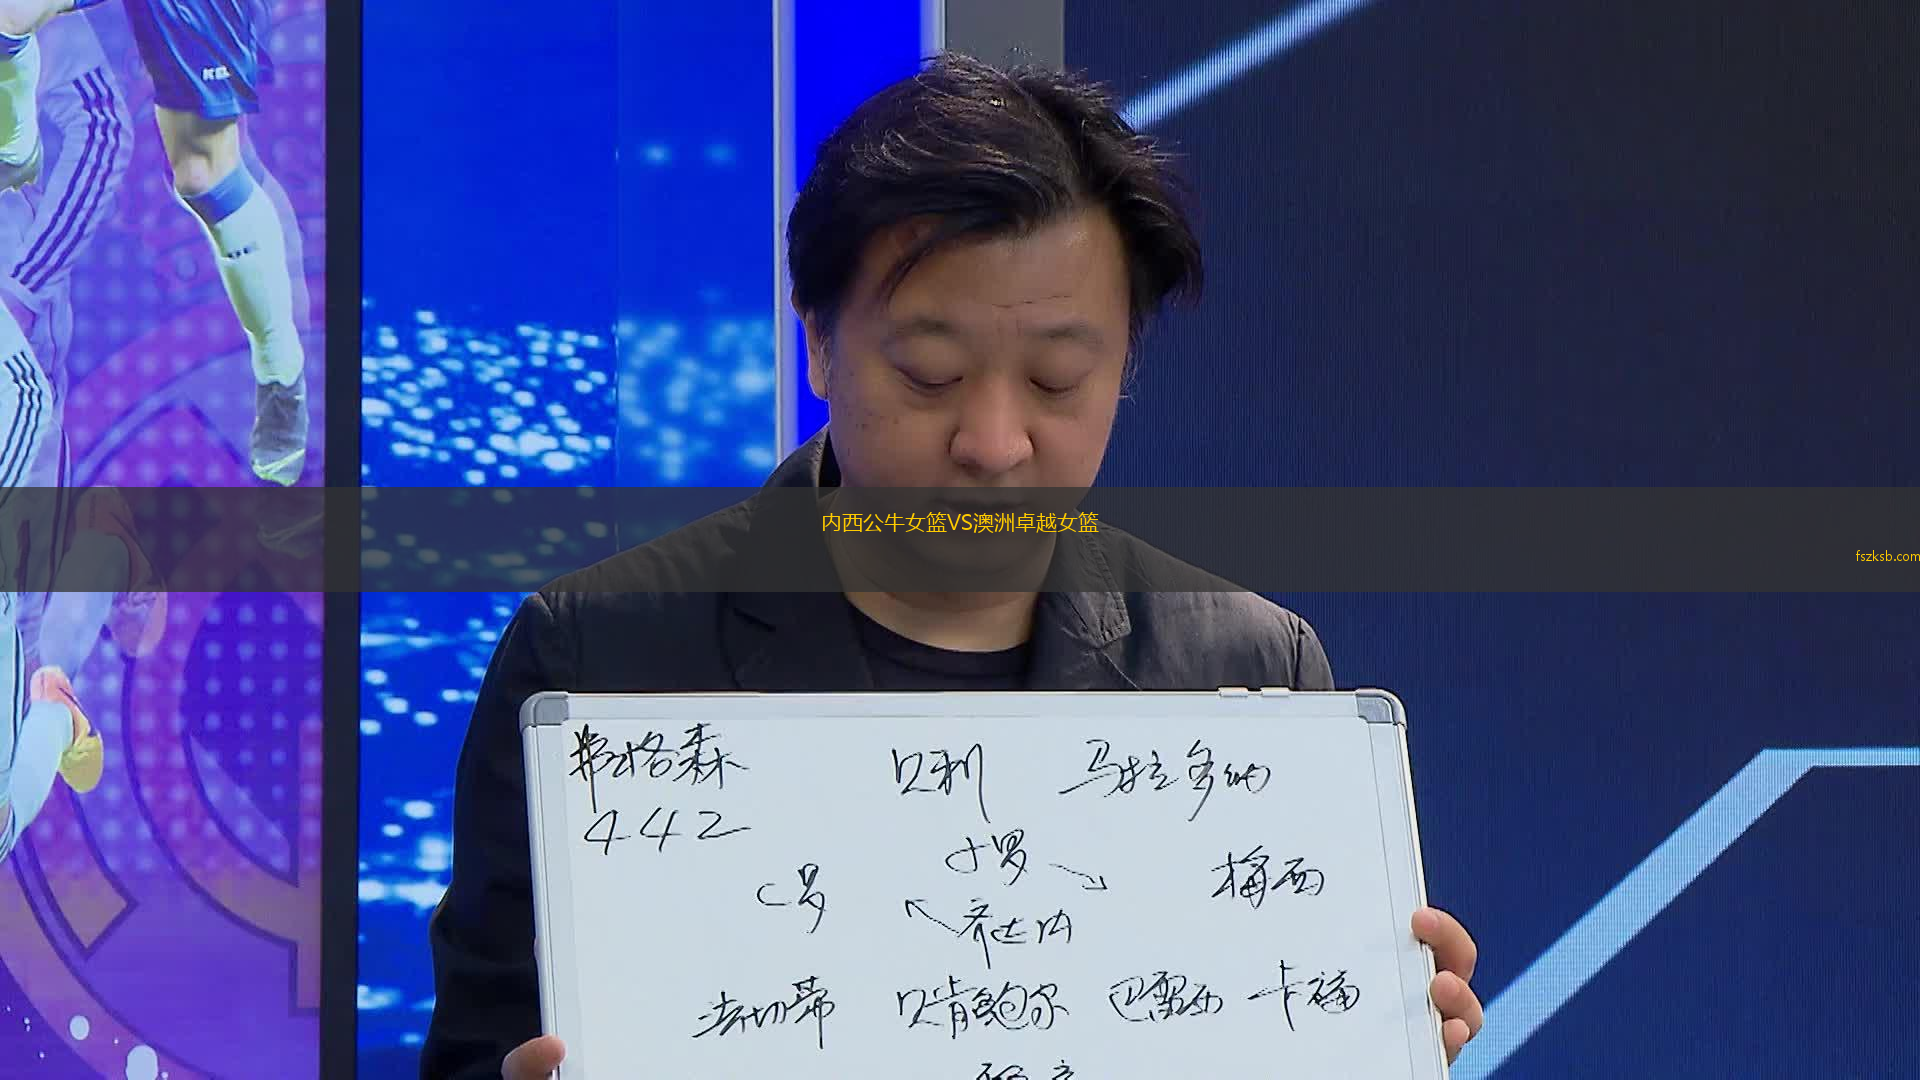 KEL
内西公牛女篮VS澳洲卓越女篮
fszksb.com
弗格森 贝利 马拉多纳
442
小罗
C罗 梅西
齐达内
法切蒂 贝肯鲍尔 巴雷西 卡福